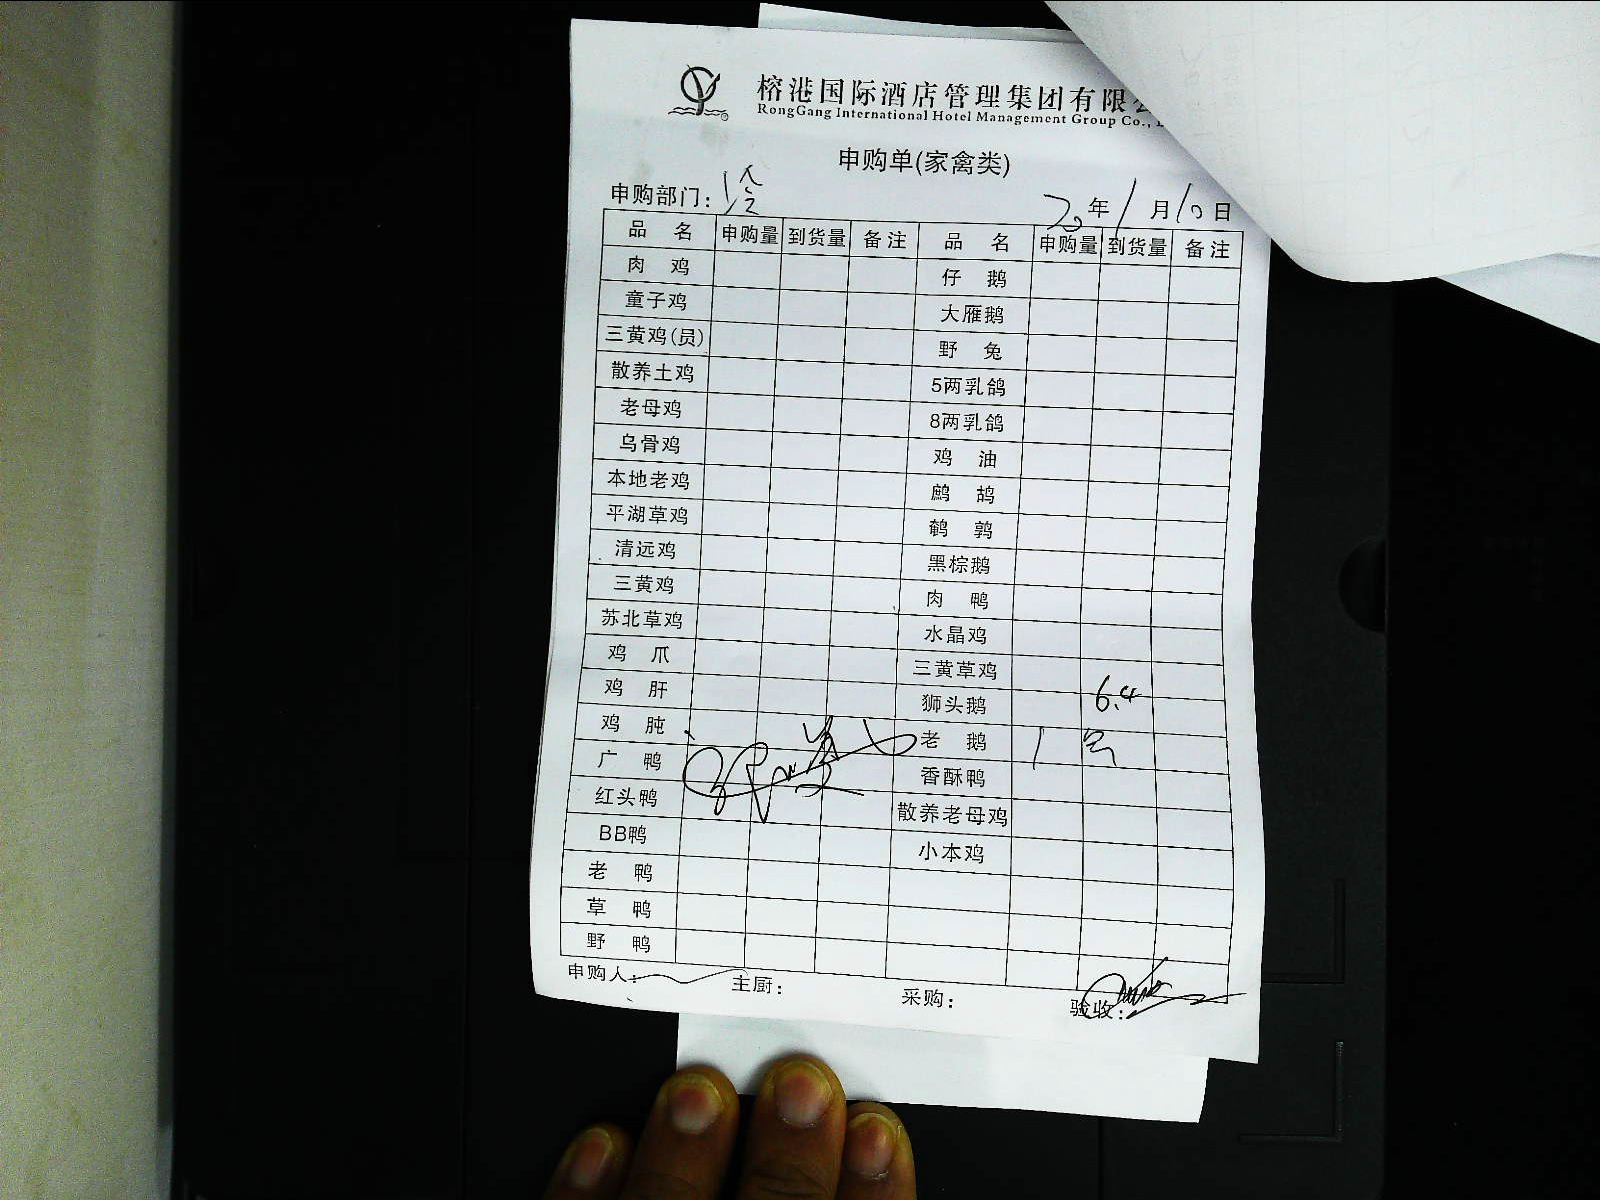 榕港国际酒店管理集团有限
RongGang International Hotel Management Group Co.,
申购单(家禽类)
申购部门: 20年1月10日
品名 申购量 到货量 备注 品名 申购量 到货量 备注
肉鸡 仔鹅
童子鸡 大雁鹅
三黄鸡(员) 野兔
散养土鸡 5两乳鸽
老母鸡 8两乳鸽
乌骨鸡 鸡油
本地老鸡 鹧鸪
平湖草鸡 鹌鹑
清远鸡 黑棕鹅
三黄鸡 肉鸭
苏北草鸡 水晶鸡
鸡爪 三黄草鸡
鸡肝 狮头鹅 6.4
鸡肫 老鹅 1
广鸭 香酥鸭
红头鸭 散养老母鸡
BB鸭 小本鸡
老鸭
草鸭
野鸭
申购人: 主厨: 采购: 验收: